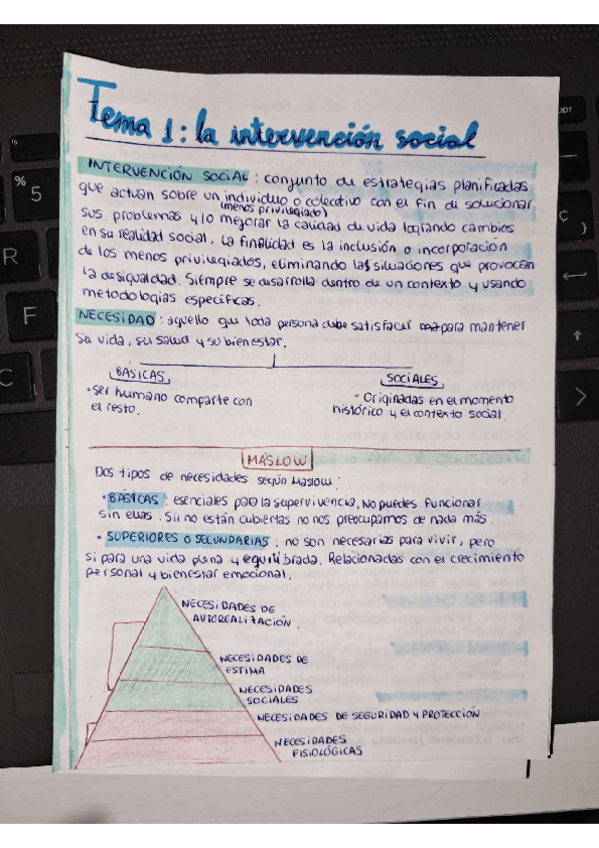 Tema 1: la intervención social
INTERVENCIÓN SOCIAL: conjunto de estrategias planificadas
que actuan sobre un individuo o colectivo con el fin de solucionar
(menos privilegiado)
sus problemas y/o mejorar la calidad de vida logrando cambios
en su realidad social. La finalidad es la inclusión o incorporación
de los menos privilegiados, eliminando las situaciones que provocan
la desigualdad. Siempre se desarrolla dentro de un contexto y usando
metodologías específicas.
NECESIDAD: aquello que toda persona debe satisfacer para mantener
su vida, su salud y su bienestar.
BÁSICAS
SOCIALES
· Ser humano comparte con
el resto.
· Originadas en el momento
histórico y el contexto social.
MASLOW
Dos tipos de necesidades según Maslow:
· BÁSICAS: esenciales para la supervivencia. No puedes funcionar
sin ellas. Si no están cubiertas no nos preocupamos de nada más.
· SUPERIORES O SECUNDARIAS: no son necesarias para vivir, pero
si para una vida plena y equilibrada. Relacionadas con el crecimiento
personal y bienestar emocional.
NECESIDADES DE
AUTOREALIZACIÓN.
NECESIDADES DE
ESTIMA
NECESIDADES
SOCIALES
NECESIDADES DE SEGURIDAD Y PROTECCIÓN
NECESIDADES
FISIOLÓGICAS
%
5
R
F
C
Ç
}